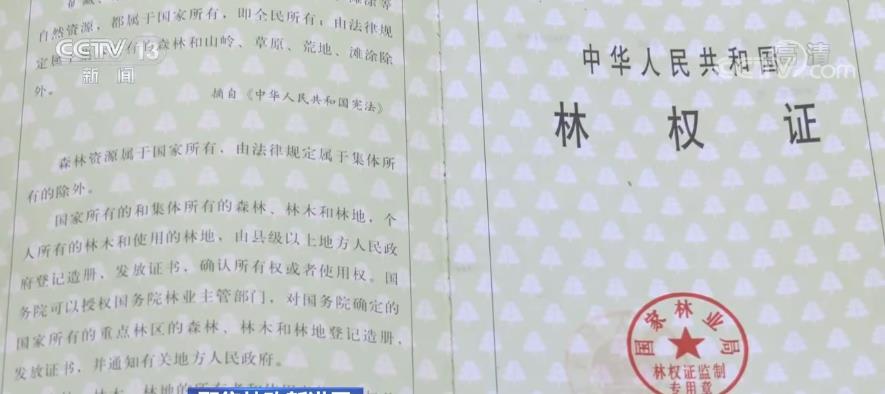 自然资源,都属于国家所有,即全民所有;由法律规
森林和山岭、草原、荒地、滩涂除
外。
摘自《中华人民共和国宪法》
森林资源属于国家所有,由法律规定属于集体所
有的除外。
国家所有的和集体所有的森林、林木和林地,个
人所有的林木和使用的林地,由县级以上地方人民政
府登记造册,发放证书,确认所有权或者使用权。国
务院可以授权国务院林业主管部门,对国务院确定的
国家所有的重点林区的森林、林木和林地登记造册,
发放证书,并通知有关地方人民政府。
中华人民共和国
林权证
国家林业局
林权证监制
专用章
CCTV 13
新闻
CCTV.com 高清